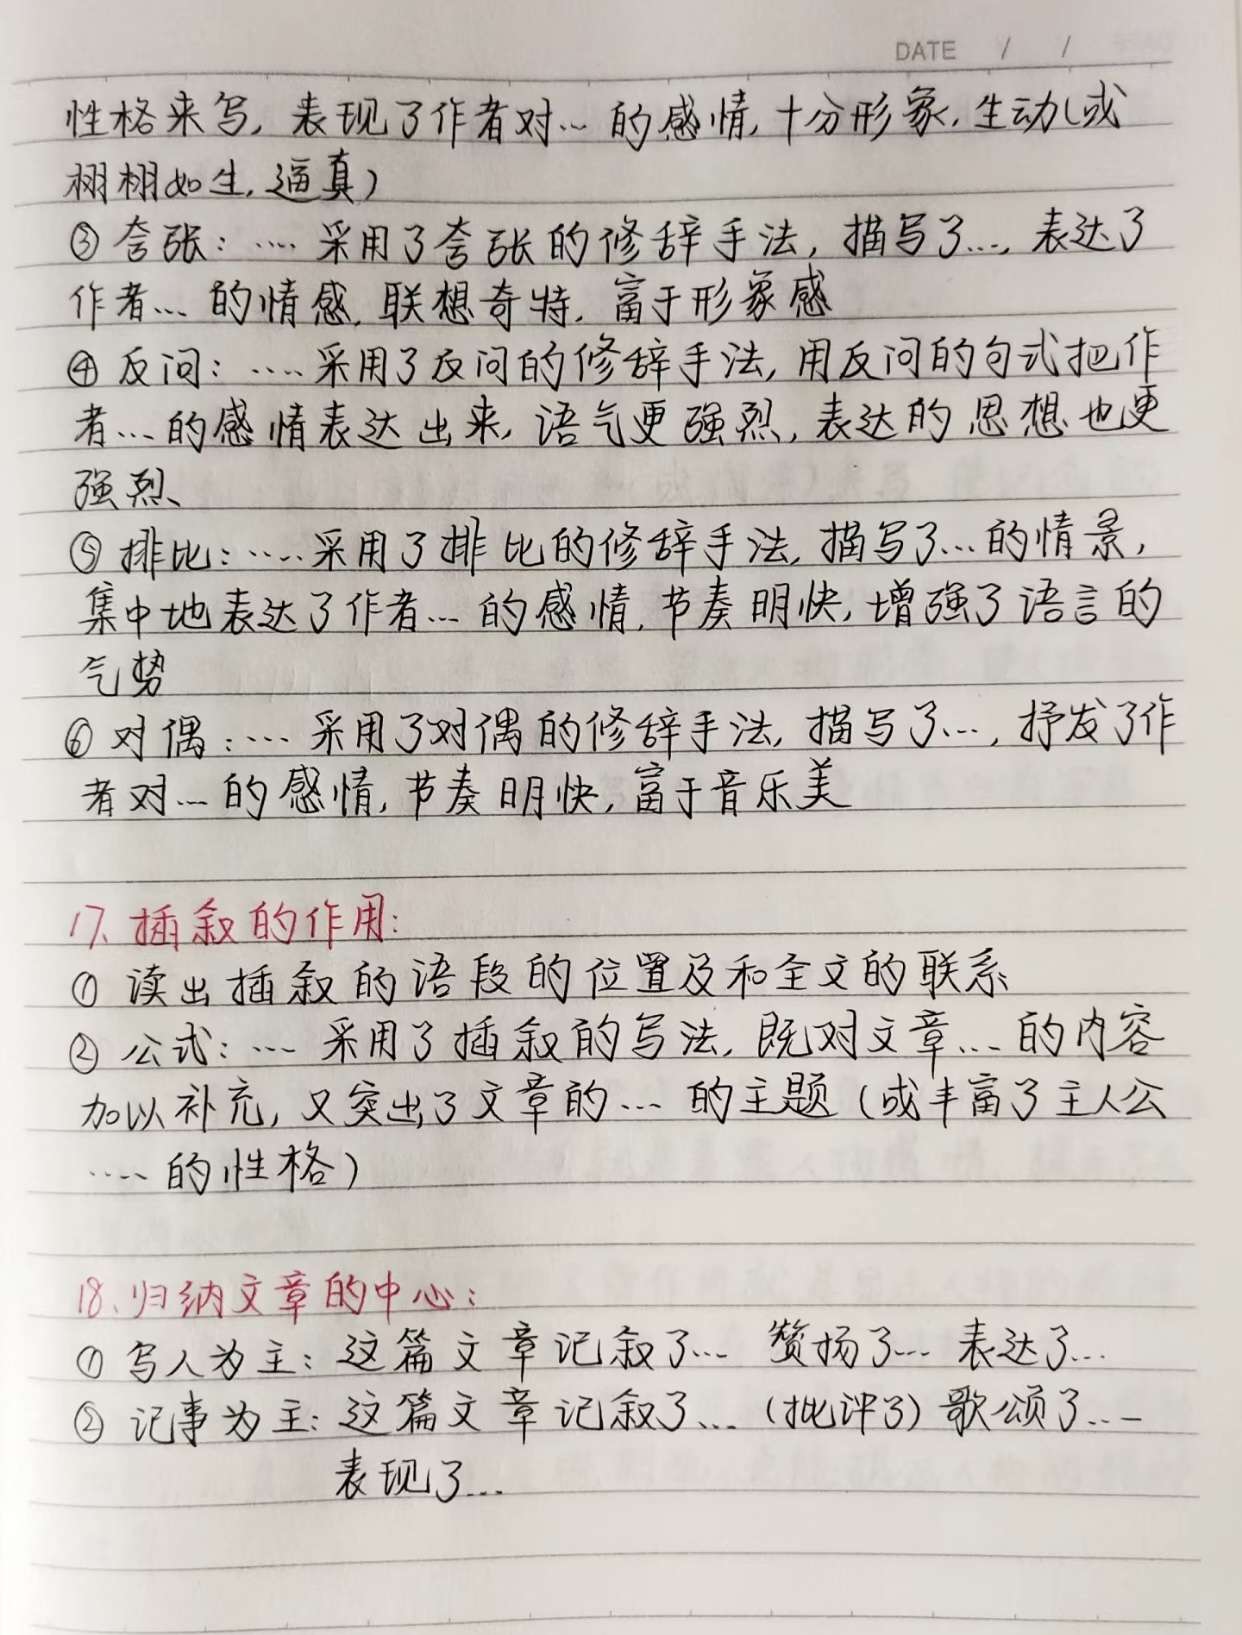 DATE / /
性格来写, 表现了作者对… 的感情, 十分形象, 生动(或
栩栩如生, 逼真)
③ 夸张: …… 采用了夸张的修辞手法, 描写了…, 表达了
作者… 的情感, 联想奇特, 富于形象感
④ 反问: …… 采用了反问的修辞手法, 用反问的句式把作
者… 的感情表达出来, 语气更强烈, 表达的思想也更
强烈、
⑤ 排比: …… 采用了排比的修辞手法, 描写了… 的情景,
集中地表达了作者… 的感情, 节奏明快, 增强了语言的
气势
⑥ 对偶: …… 采用了对偶的修辞手法, 描写了…, 抒发了作
者对… 的感情, 节奏明快, 富于音乐美
17、插叙的作用:
① 读出插叙的语段的位置及和全文的联系
② 公式: … 采用了插叙的写法, 既对文章… 的内容
加以补充, 又突出了文章的… 的主题 (或丰富了主人公
…… 的性格)
18、归纳文章的中心:
① 写人为主: 这篇文章记叙了… 赞扬了… 表达了…
② 记事为主: 这篇文章记叙了… (批评了) 歌颂了…
表现了…